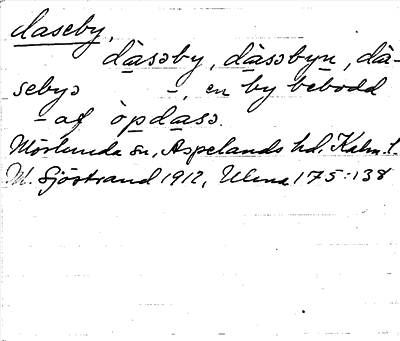 daseby,
dàsəby, dàsəbyn, dà-
sebyə -, en by bebodd
- af òpdasə.
Mörlunda sn, Aspelands hd. Kalm. l.
M. Sjöstrand 1912, Ulma 175:138